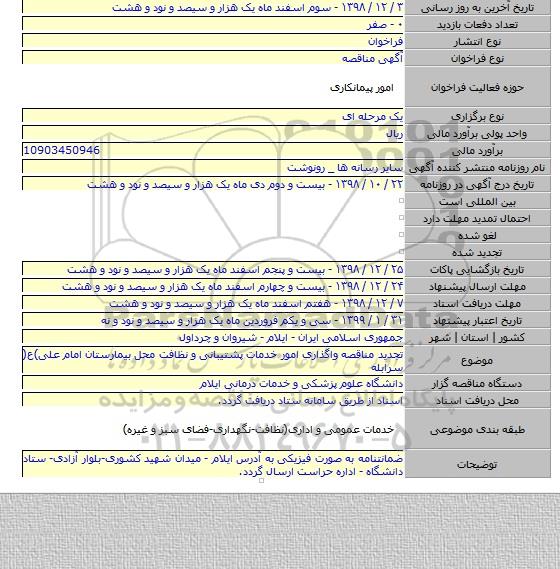 تاریخ آخرین به روز رسانی ۳ / ۱۲ / ۱۳۹۸ - سوم اسفند ماه یک هزار و سیصد و نود و هشت
تعداد دفعات بازدید ۰ - صفر
نوع انتشار فراخوان
نوع فراخوان آگهی مناقصه
حوزه فعالیت فراخوان امور پیمانکاری
نوع برگزاری یک مرحله ای
واحد پولی برآورد مالی ریال
برآورد مالی 10903450946
نام روزنامه منتشر کننده آگهی سایر رسانه ها _ رونوشت
تاریخ درج آگهی در روزنامه ۲۲ / ۱۰ / ۱۳۹۸ - بیست و دوم دی ماه یک هزار و سیصد و نود و هشت
بین المللی است
احتمال تمدید مهلت دارد
لغو شده
تجدید شده
تاریخ بازگشایی پاکات ۲۵ / ۱۲ / ۱۳۹۸ - بیست و پنجم اسفند ماه یک هزار و سیصد و نود و هشت
مهلت ارسال پیشنهاد ۲۴ / ۱۲ / ۱۳۹۸ - بیست و چهارم اسفند ماه یک هزار و سیصد و نود و هشت
مهلت دریافت اسناد ۷ / ۱۲ / ۱۳۹۸ - هفتم اسفند ماه یک هزار و سیصد و نود و هشت
تاریخ اعتبار پیشنهاد ۳۱ / ۱ / ۱۳۹۹ - سی و یکم فروردین ماه یک هزار و سیصد و نود و نه
کشور | استان | شهر جمهوری اسلامی ایران - ایلام - شیروان و چرداول
موضوع تجدید مناقصه واگذاری امور خدمات پشتیبانی و نظافت محل بیمارستان امام علی)ع(
سرابله
دستگاه مناقصه گزار دانشگاه علوم پزشکی و خدمات درمانی ایلام
محل دریافت اسناد اسناد از طریق سامانه ستاد دریافت گردد.
طبقه بندی موضوعی خدمات عمومی و اداری(نظافت-نگهداری-فضای سبز و غیره)
توضیحات ضمانتنامه به صورت فیزیکی به آدرس ایلام - میدان شهید کشوری-بلوار آزادی- ستاد
دانشگاه - اداره حراست ارسال گردد.
۰۲۱-۸۸۳۴۹۶۷۰-۵